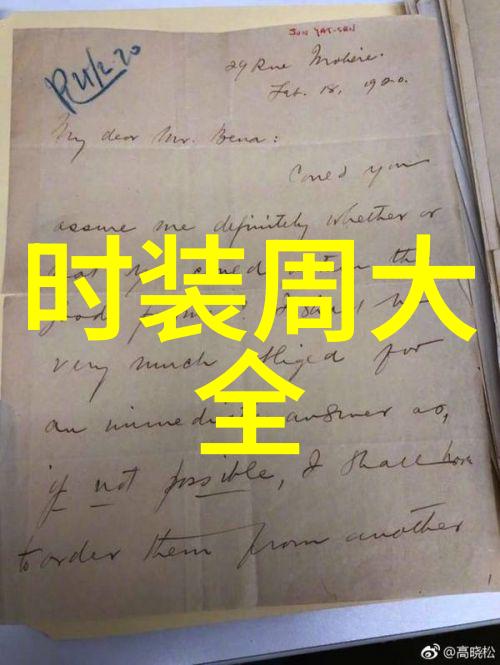 SUN YAT-SEN
R 21/2.20
29 Rue Molière.
Feb. 18, 1920.
My dear Mr. Bena:
Could you
assure me definitely whether or
not
时装周大
全
very much obliged for
an immediate answer as,
if not possible, I shall have
to order them from another
@高晓松